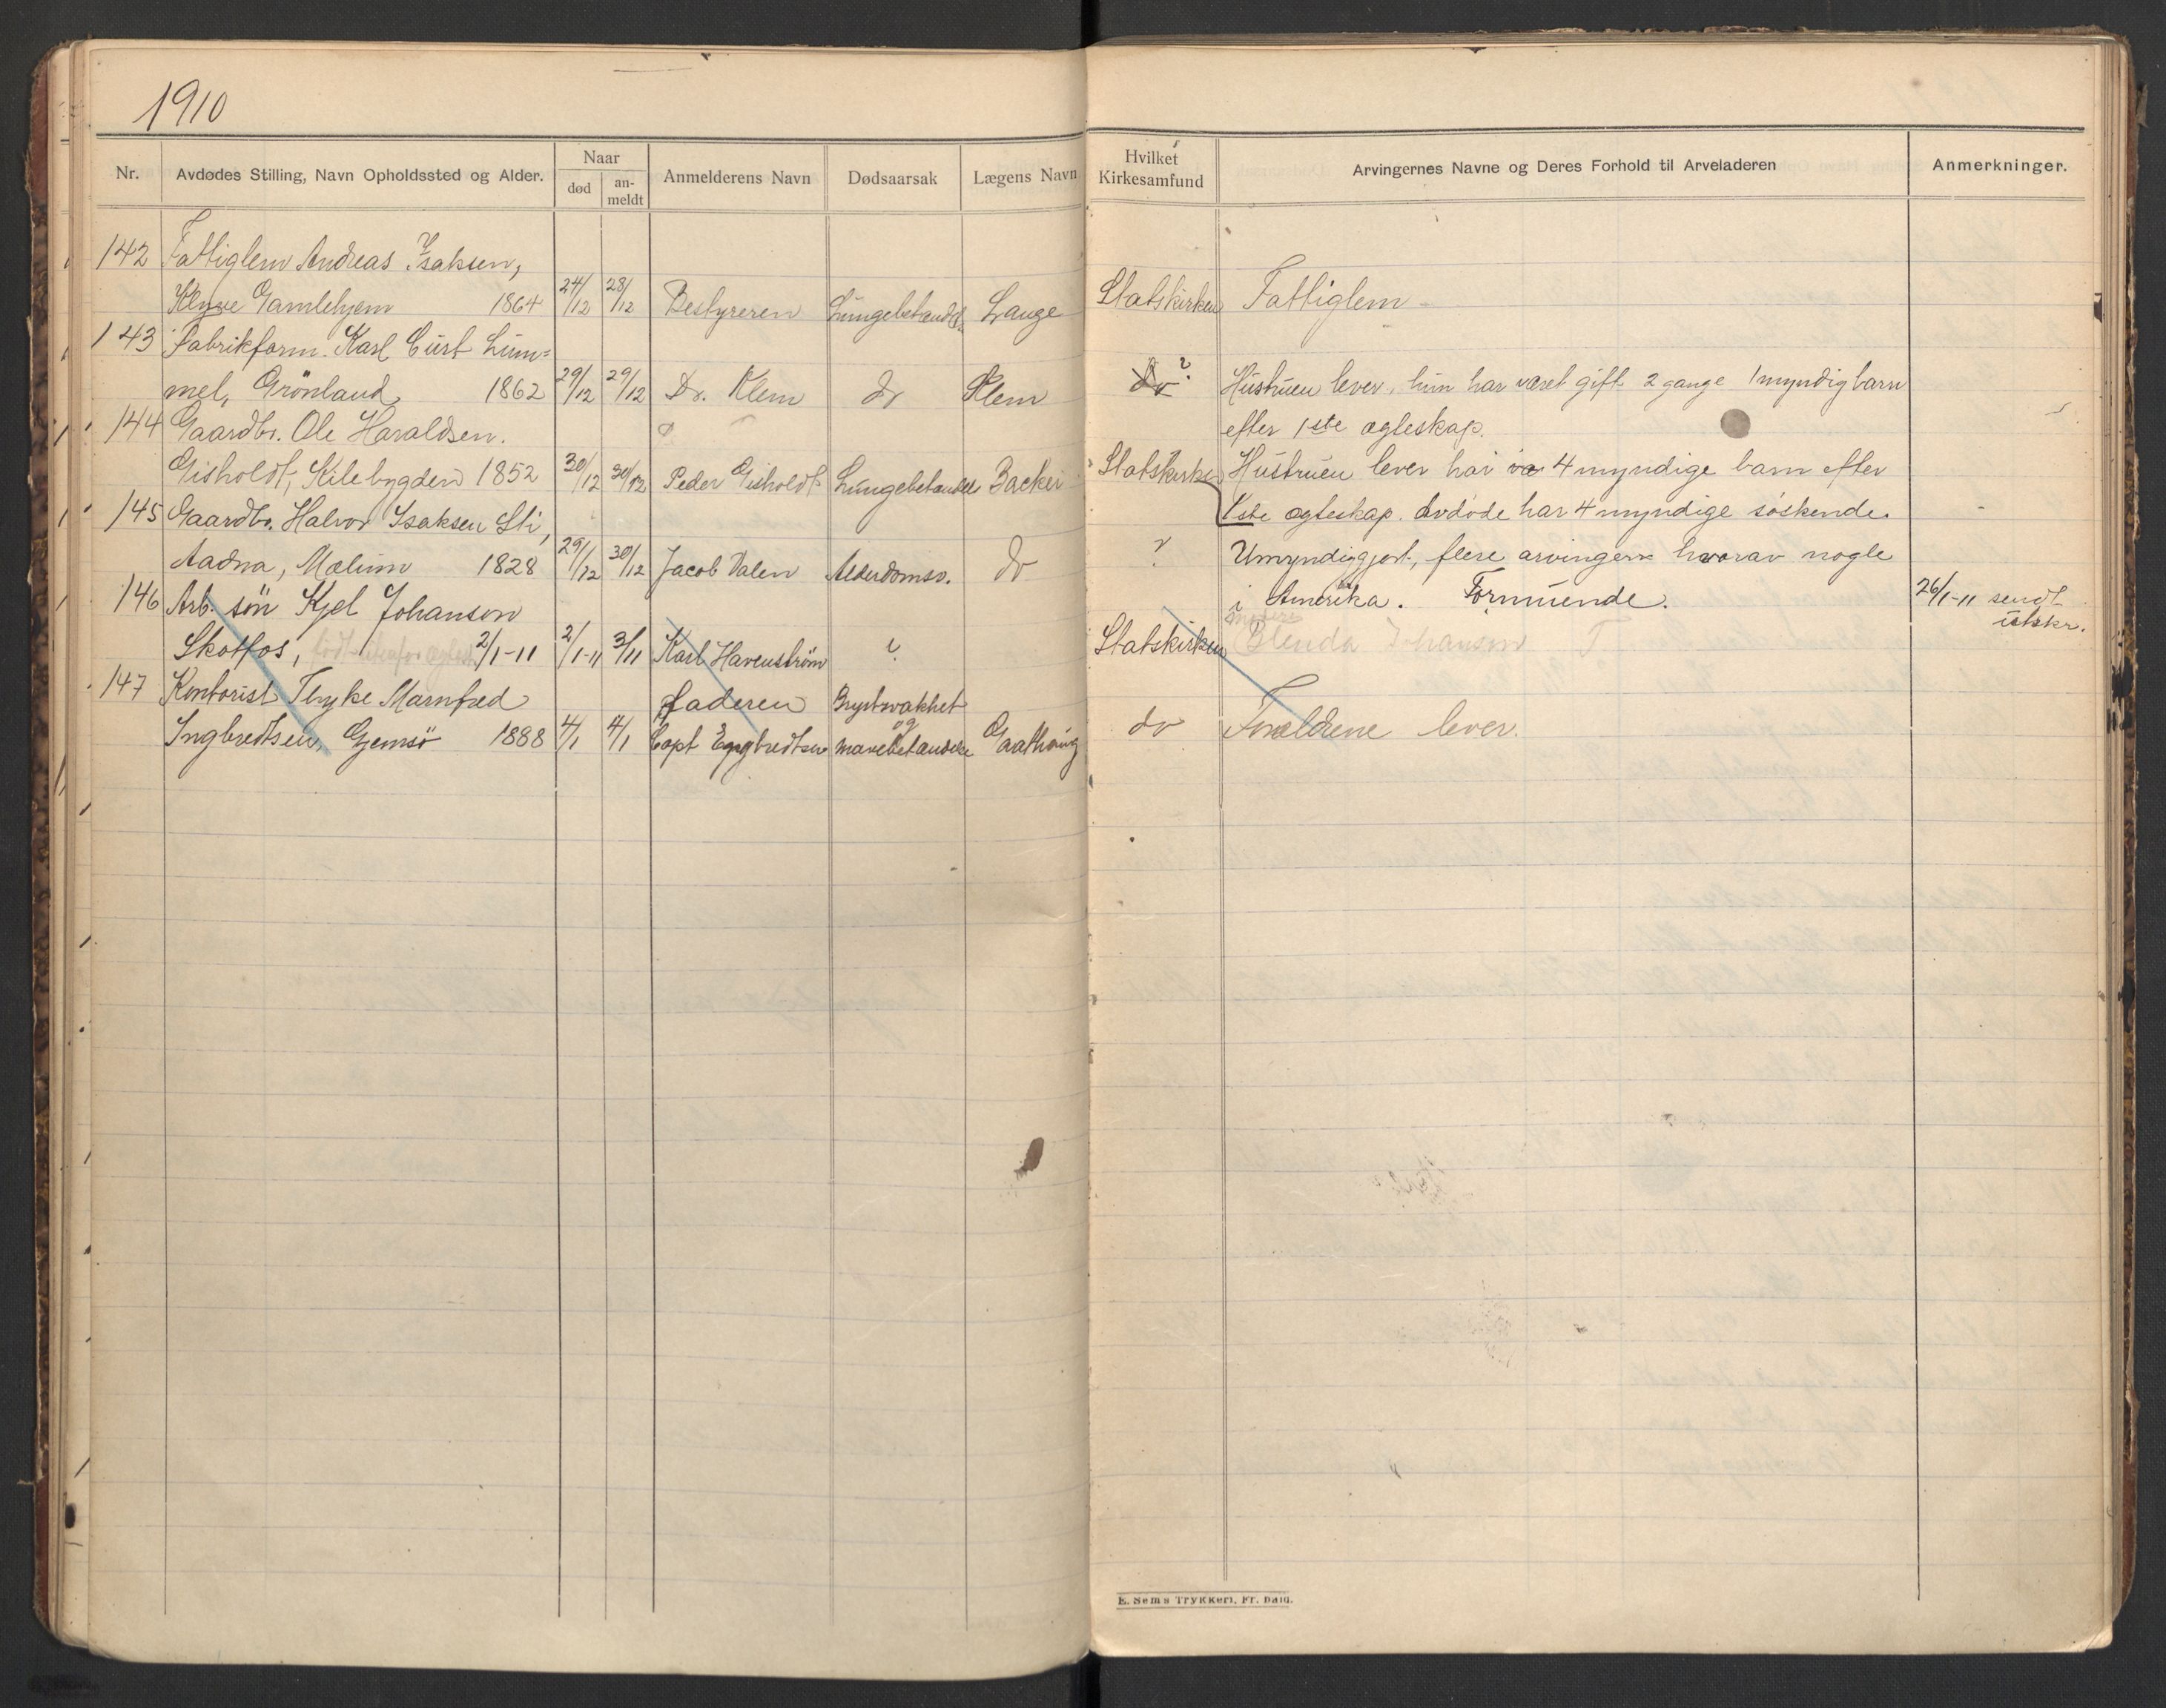 1910
Nr. Avdødes Stilling, Navn Opholdssted og Alder. Naar død an-meldt Anmelderens Navn Dødsaarsak Lægens Navn Hvilket Kirkesamfund Arvingernes Navne og Deres Forhold til Arveladeren Anmerkninger.
142 Fattiglem Andreas Isaksen,
Klyve Gamlehjem 1864 24/12 28/12 Bestyreren Lungebetændels Lange Statskirken Fattiglem
143 Fabrikform. Karl Curt Lum=
mel, Grönland 1862 29/12 29/12 Dr. Klem do Klem do ? Hustruen lever, hun har været gift 2 gange 1 myndig barn
144 Gaardbr. Ole Haraldsen. efter 1ste ægteskap.
Gisholdt, Kilebygden 1852 30/12 30/12 Peder Gisholdt Lungebetændels Backer Statskirken Hustruen lever har 4 myndige barn efter
145 Gaardbr. Halvor Isaksen Sti, 1ste ægteskap. Avdøde har 4 myndige søskende.
Aadna, Mælum 1828 29/12 30/12 Jacob Dalen Alderdomsv. do ? Umyndiggjort, flere arvinger hvorav nogle
146 Arb. søn Kjel Johanson i Amerika. Formuende. 26/1-11 sendt utskr.
Skotfos, 2/1-11 2/1-11 3/11 Karl Havenström ? Statskirken Blenda Johanson
147 Kontorist Thyke Marnfred Faderen Brystsvakhet
Ingbredtsen, Gjemsö 1888 4/1 4/1 Capt Engbredtsen og mavebetændelse Gaathaug do Forældrene lever.
E. Sems Trykkeri, Fr. hald.